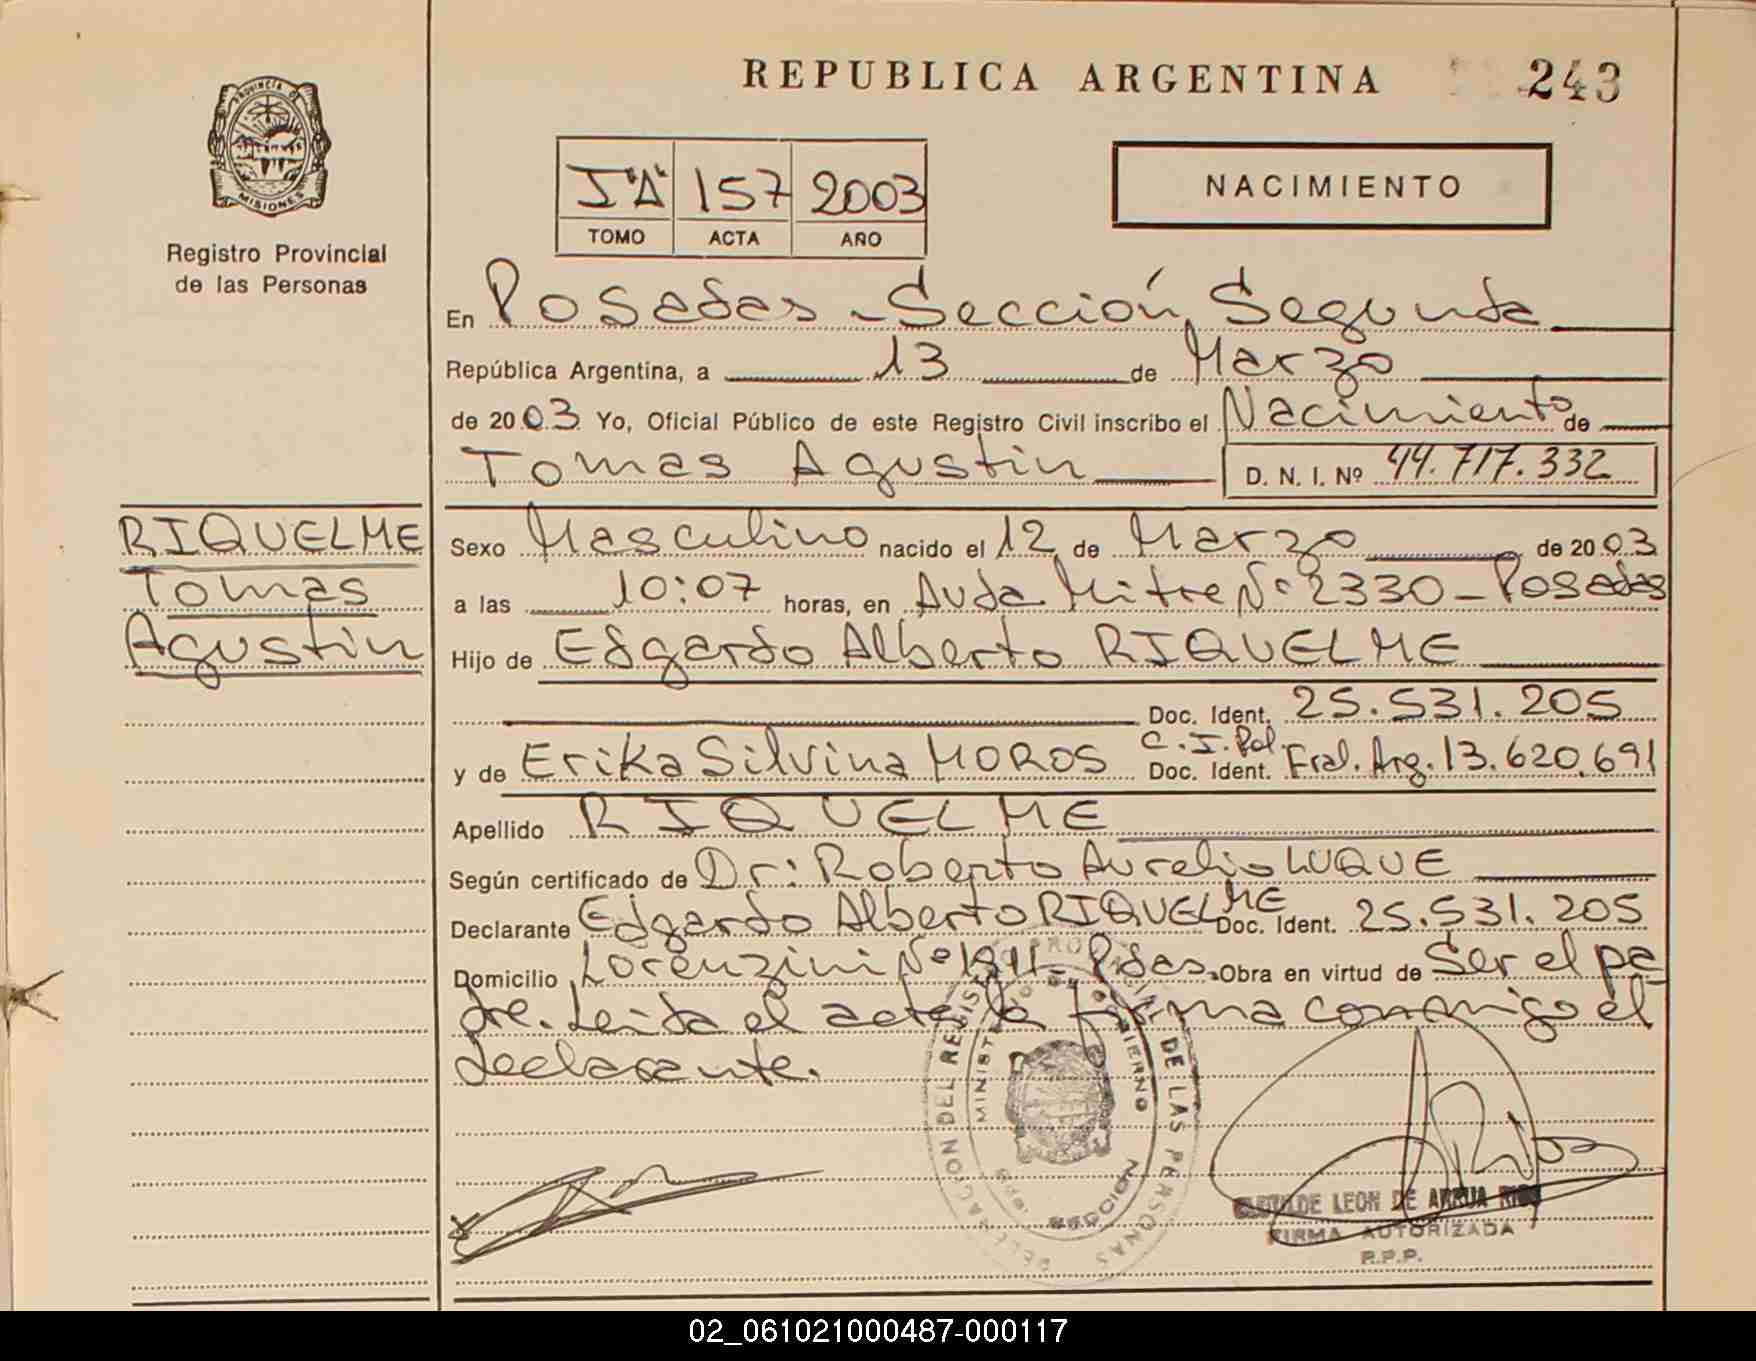 REPUBLICA ARGENTINA
243
PROVINCIA DE
MISIONES
Registro Provincial
de las Personas
I "A" 157 2003
TOMO ACTA AÑO
NACIMIENTO
En Posadas - Sección Segunda
República Argentina, a 13 de Marzo
de 2003 Yo, Oficial Público de este Registro Civil inscribo el Nacimiento de
Tomas Agustin D. N. I. Nº 44.717.332
RIQUELME
Tomas
Agustin
Sexo Masculino nacido el 12 de Marzo de 2003
a las 10:07 horas, en Avda. Mitre Nº 2330 - Posadas
Hijo de Edgardo Alberto RIQUELME
Doc. Ident. 25.531.205
y de Erika Silvina MOROS C.I. Pol. Doc. Ident. Fral. Arg. 13.620.691
Apellido RIQUELME
Según certificado de Dr: Roberto Aurelio LUQUE
Declarante Edgardo Alberto RIQUELME Doc. Ident. 25.531.205
Domicilio Lorenzini Nº 1911 - Pdas. Obra en virtud de Ser el pa
dre. Leida el acta la firma conmigo el
declarante.
DELEGACION DEL REGISTRO PROVINCIAL DE LAS PERSONAS
MINISTERIO DE GOBIERNO
SECCION
LEON DE ARRUA RIOS
FIRMA AUTORIZADA
R.P.P.
02_061021000487-000117